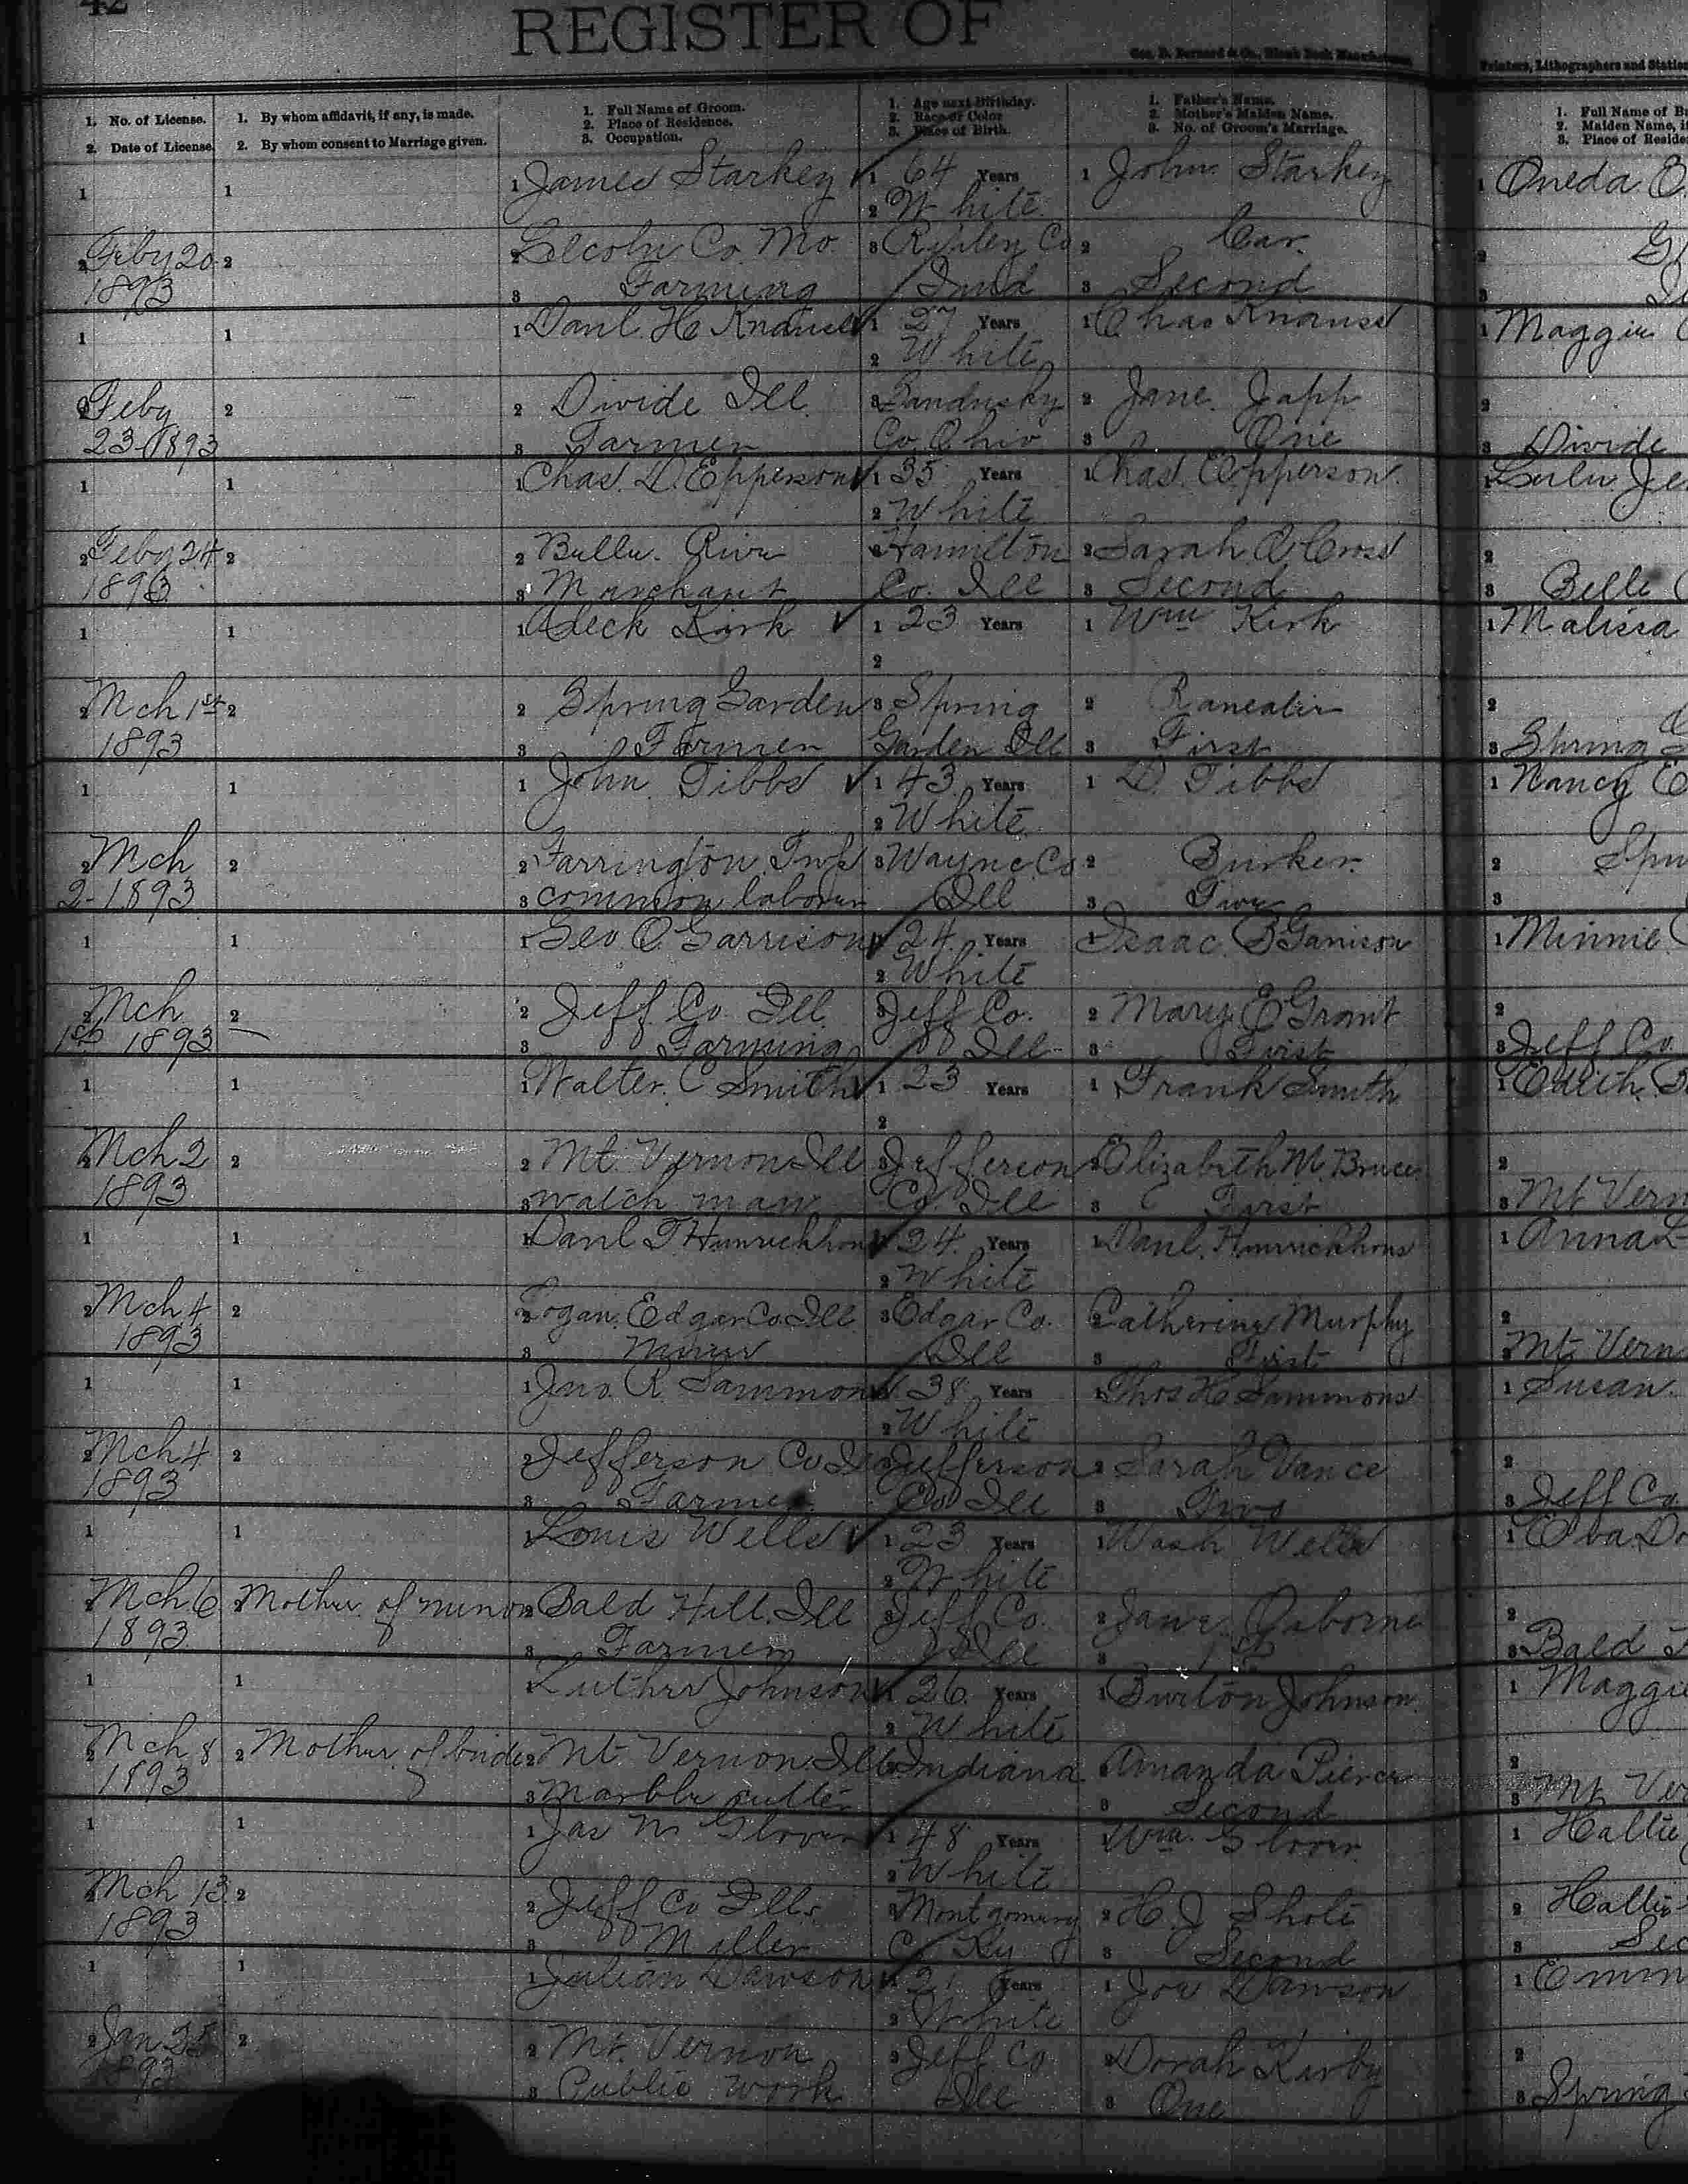 42
REGISTER OF
Geo. D. Barnard & Co., Blank Book Manufacturers
Printers, Lithographers and Statio
1. No. of License.
2. Date of License.
1. By whom affidavit, if any, is made.
2. By whom consent to Marriage given.
1. Full Name of Groom.
2. Place of Residence.
3. Occupation.
1. Age next Birthday.
2. Race or Color
3. Place of Birth.
1. Father's Name.
2. Mother's Maiden Name.
3. No. of Groom's Marriage.
1. Full Name of B
2. Maiden Name, i
3. Place of Reside
1 1 1 James Starkey 1 64 Years 1 John Starkey 1 Oneda O.
2 White
2 Feby 20 2 2 Lecoln Co. Mo 3 Ripley Co 2 Car. 2
1893 3 Farming Ind 3 Second 3
1 1 1 Danl. H Knauss 1 27 Years 1 Chas Knauss 1 Maggie
2 White
2 Feby 2 2 Divide Ill. 3 Sandusky 2 Jane Japp 2
23-1893 3 Farmer Co. Ohio 3 One 3 Divide
1 1 1 Chas. D. Epperson 1 35 Years 1 Chas. Epperson. 1 Lulu Je
2 White
2 Feby 24 2 2 Belle River 3 Hamilton 2 Sarah Cross 2
1893 3 Merchant Co. Ill 3 Second 3 Belle
1 1 1 Aleck Kirk 1 23 Years 1 Wm Kirk 1 Malissa
2
2 Mch 1st 2 2 Spring Garden 3 Spring 2 2
1893 3 Farmer Garden Ill 3 First 3 Spring
1 1 1 John Tibbs 1 43 Years 1 D. Tibbs 1 Nancy E
2 White
2 Mch 2 2 Farrington Twp 3 Wayne Co 2 Burker. 2 Spr
2-1893 3 common laborer Ill 3 Two 3
1 1 1 Geo O. Garrison 1 24 Years 1 Isaac B Garrison 1 Minnie
2 White
2 Mch 2 2 Jeff. Co. Ill. 3 Jeff Co. 2 Mary E Grant 2
1st 1893 3 Farming Ill 3 First 3 Jeff Co.
1 1 1 Walter. C Smith 1 23 Years 1 Frank Smith 1 Edith
2
2 Mch 2 2 2 Mt. Vernon Ill 3 Jefferson 2 Elizabeth M. Bruce 2
1893 3 watch man Co. Ill 3 First 3 Mt Vern
1 1 1 Danl 1 24. Years 1 Danl. 1 Anna L
2 White
2 Mch 4 2 2 Logan, Edgar Co. Ill 3 Edgar Co. 2 Catherine Murphy 2
1893 3 Miner Ill 3 First 3 Mt. Vern
1 1 1 Jno. R. Sammons 1 38 Years 1 Thos H Sammons 1 Susan.
2 White
2 Mch 4 2 2 Jefferson Co Ill 3 Jefferson 2 Sarah Vance 2
1893 3 Farmer Co Ill 3 Two 3 Jeff Co
1 1 1 Louis Wells 1 23 Years 1 Wash Wells 1 Eva
2 White
2 Mch. 6 2 Mother of minor 2 Bald Hill. Ill 3 Jeff Co. 2 Jane Osborne 2
1893 3 Farmer Ill 3 1st 3 Bald
1 1 1 Luther Johnson 1 26. Years 1 Burton Johnson 1 Maggie
2 White
2 Mch 8 2 Mother of bride 2 Mt. Vernon Ill 3 Indiana 2 Amanda Pierce 2
1893 3 Marble cutter 3 Second 3 Mt Ver
1 1 1 Jas M Glover 1 48 Years 1 Wm. Glover 1 Hallie
2 White
2 Mch 13 2 2 Jeff Co Ills 3 Montgomery 2 H. J Shote 2 Hallie
1893 3 Miller Co Ky 3 Second 3 Sec
1 1 1 Julian Dawson 1 21 Years 1 Joe Dawson 1 Emm
2 White
2 Jan 25 2 2 Mt. Vernon 3 Jeff Co 2 Dorah Kirby 2
1893 3 Public Work Ill 3 One 3 Spring